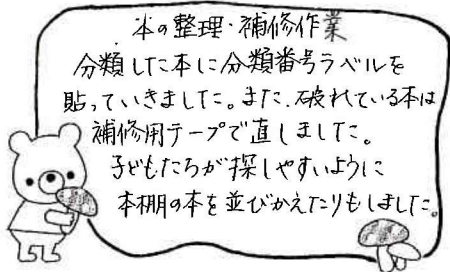 本の整理・補修作業
分類した本に分類番号ラベルを
貼っていきました。また、破れている本は
補修用テープで直しました。
子どもたちが探しやすいように
本棚の本を並びかえたりもしました。